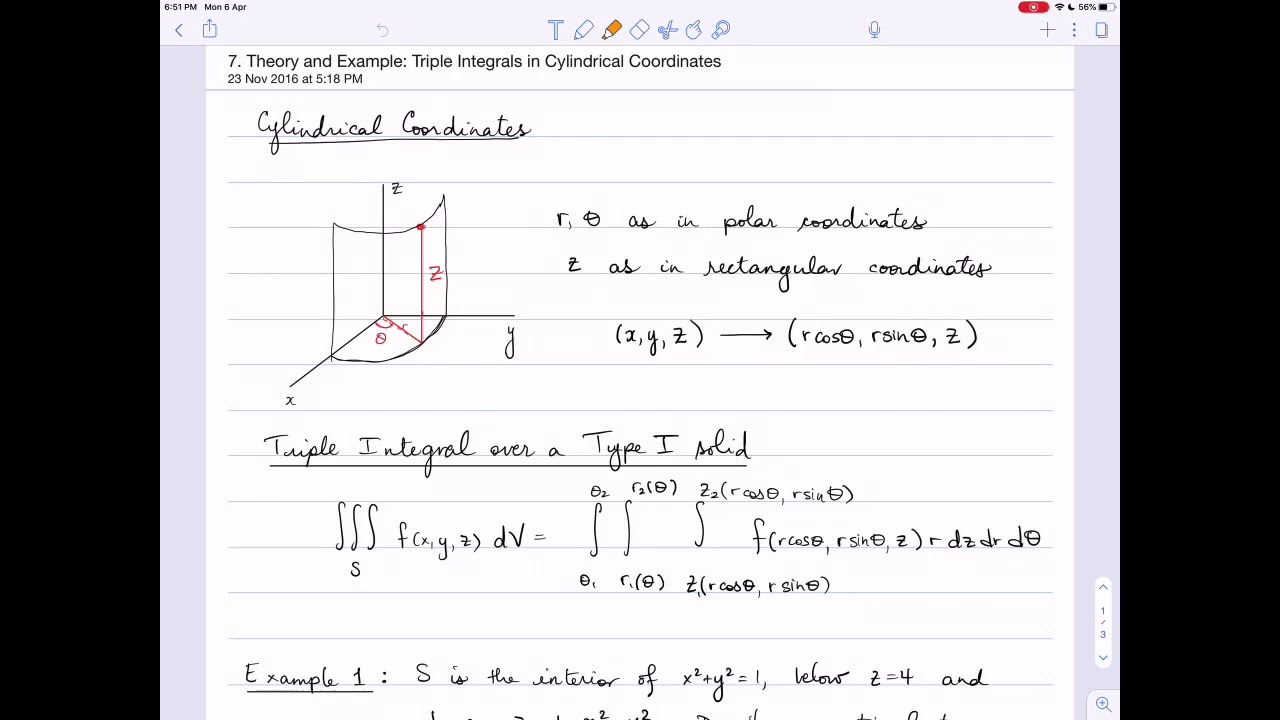 6:51 PM Mon 6 Apr
56%
T
7. Theory and Example: Triple Integrals in Cylindrical Coordinates
23 Nov 2016 at 5:18 PM
Cylindrical Coordinates
z
r, θ as in polar coordinates
z
z as in rectangular coordinates
r
θ
y
(x, y, z) ⟶ (r cosθ, r sinθ, z)
x
Triple Integral over a Type I solid
θ₂ r₂(θ) z₂(r cosθ, r sinθ)
∭ f(x, y, z) dV = ∫ ∫ ∫ f(r cosθ, r sinθ, z) r dz dr dθ
S θ₁ r₁(θ) z₁(r cosθ, r sinθ)
1
/
3
Example 1 : S is the interior of x²+y²=1, below z=4 and